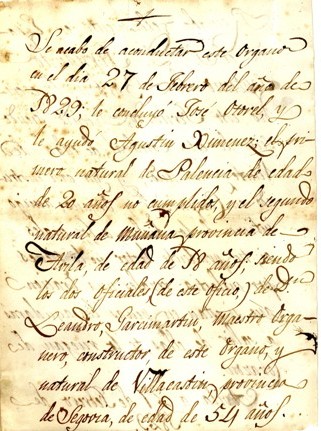 Se acabo de aconductar este Organo
en el dia 27 de Febrero del año de
1829; lo concluyó José Otorel, y
le ayudó Agustin Ximenez; el pri-
mero natural de Palencia de edad
de 20 años no cumplidos, y el segundo
natural de Muñana provincia de
Avila, de edad de 18 años; siendo
los dos oficiales (de este oficio) de Dn
Leandro Garcimartin, Maestro Orga-
nero, constructor, de este Organo, y
natural de Villacastin, provincia
de Segovia, de edad de 54 años...